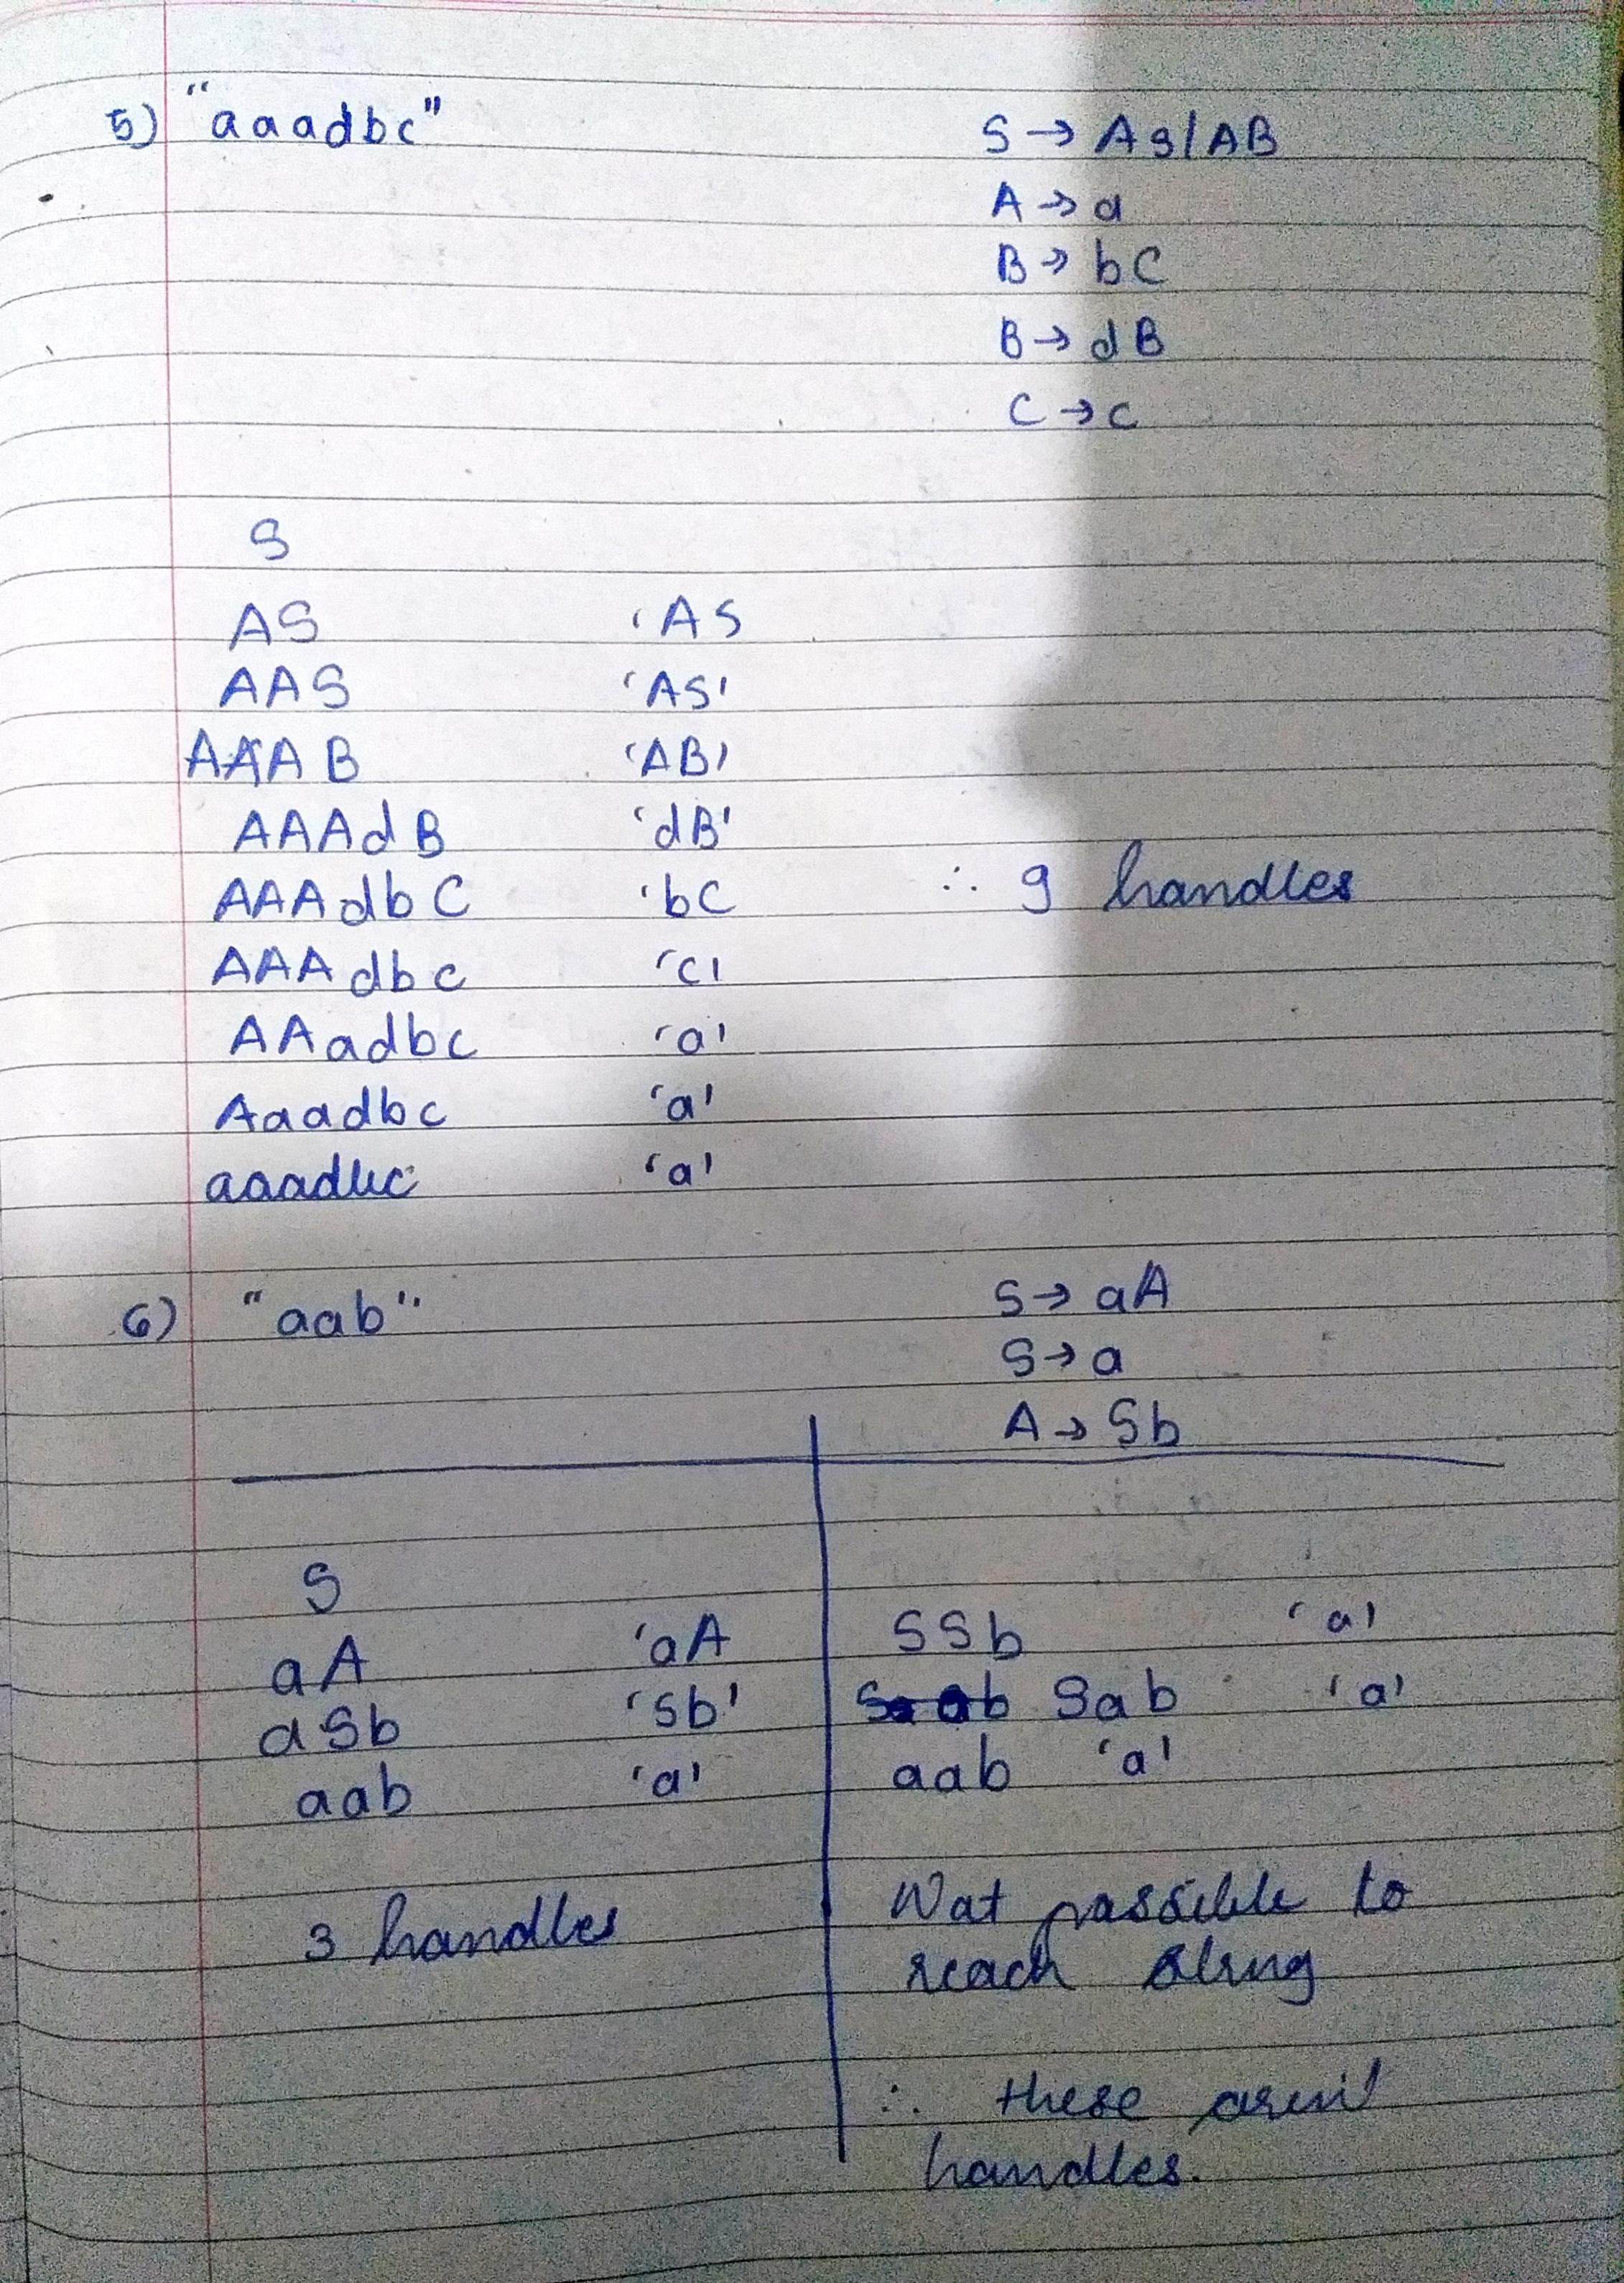 5) "aaadbc" S → AS/AB
A → a
B → bC
B → dB
C → c
S
AS 'AS
AAS 'AS'
AAAB 'AB'
AAAdB 'dB'
AAAdbC 'bC ∴ 9 handles
AAAdbc 'c'
AAadbc 'a'
Aaadbc 'a'
aaadbc 'a'
6) "aab" S → aA
S → a
A → Sb
S
aA 'aA
aSb 'Sb'
aab 'a'
3 handles
SSb 'a'
Sab 'a'
aab 'a'
Not possible to
reach string
∴ these aren't
handles.